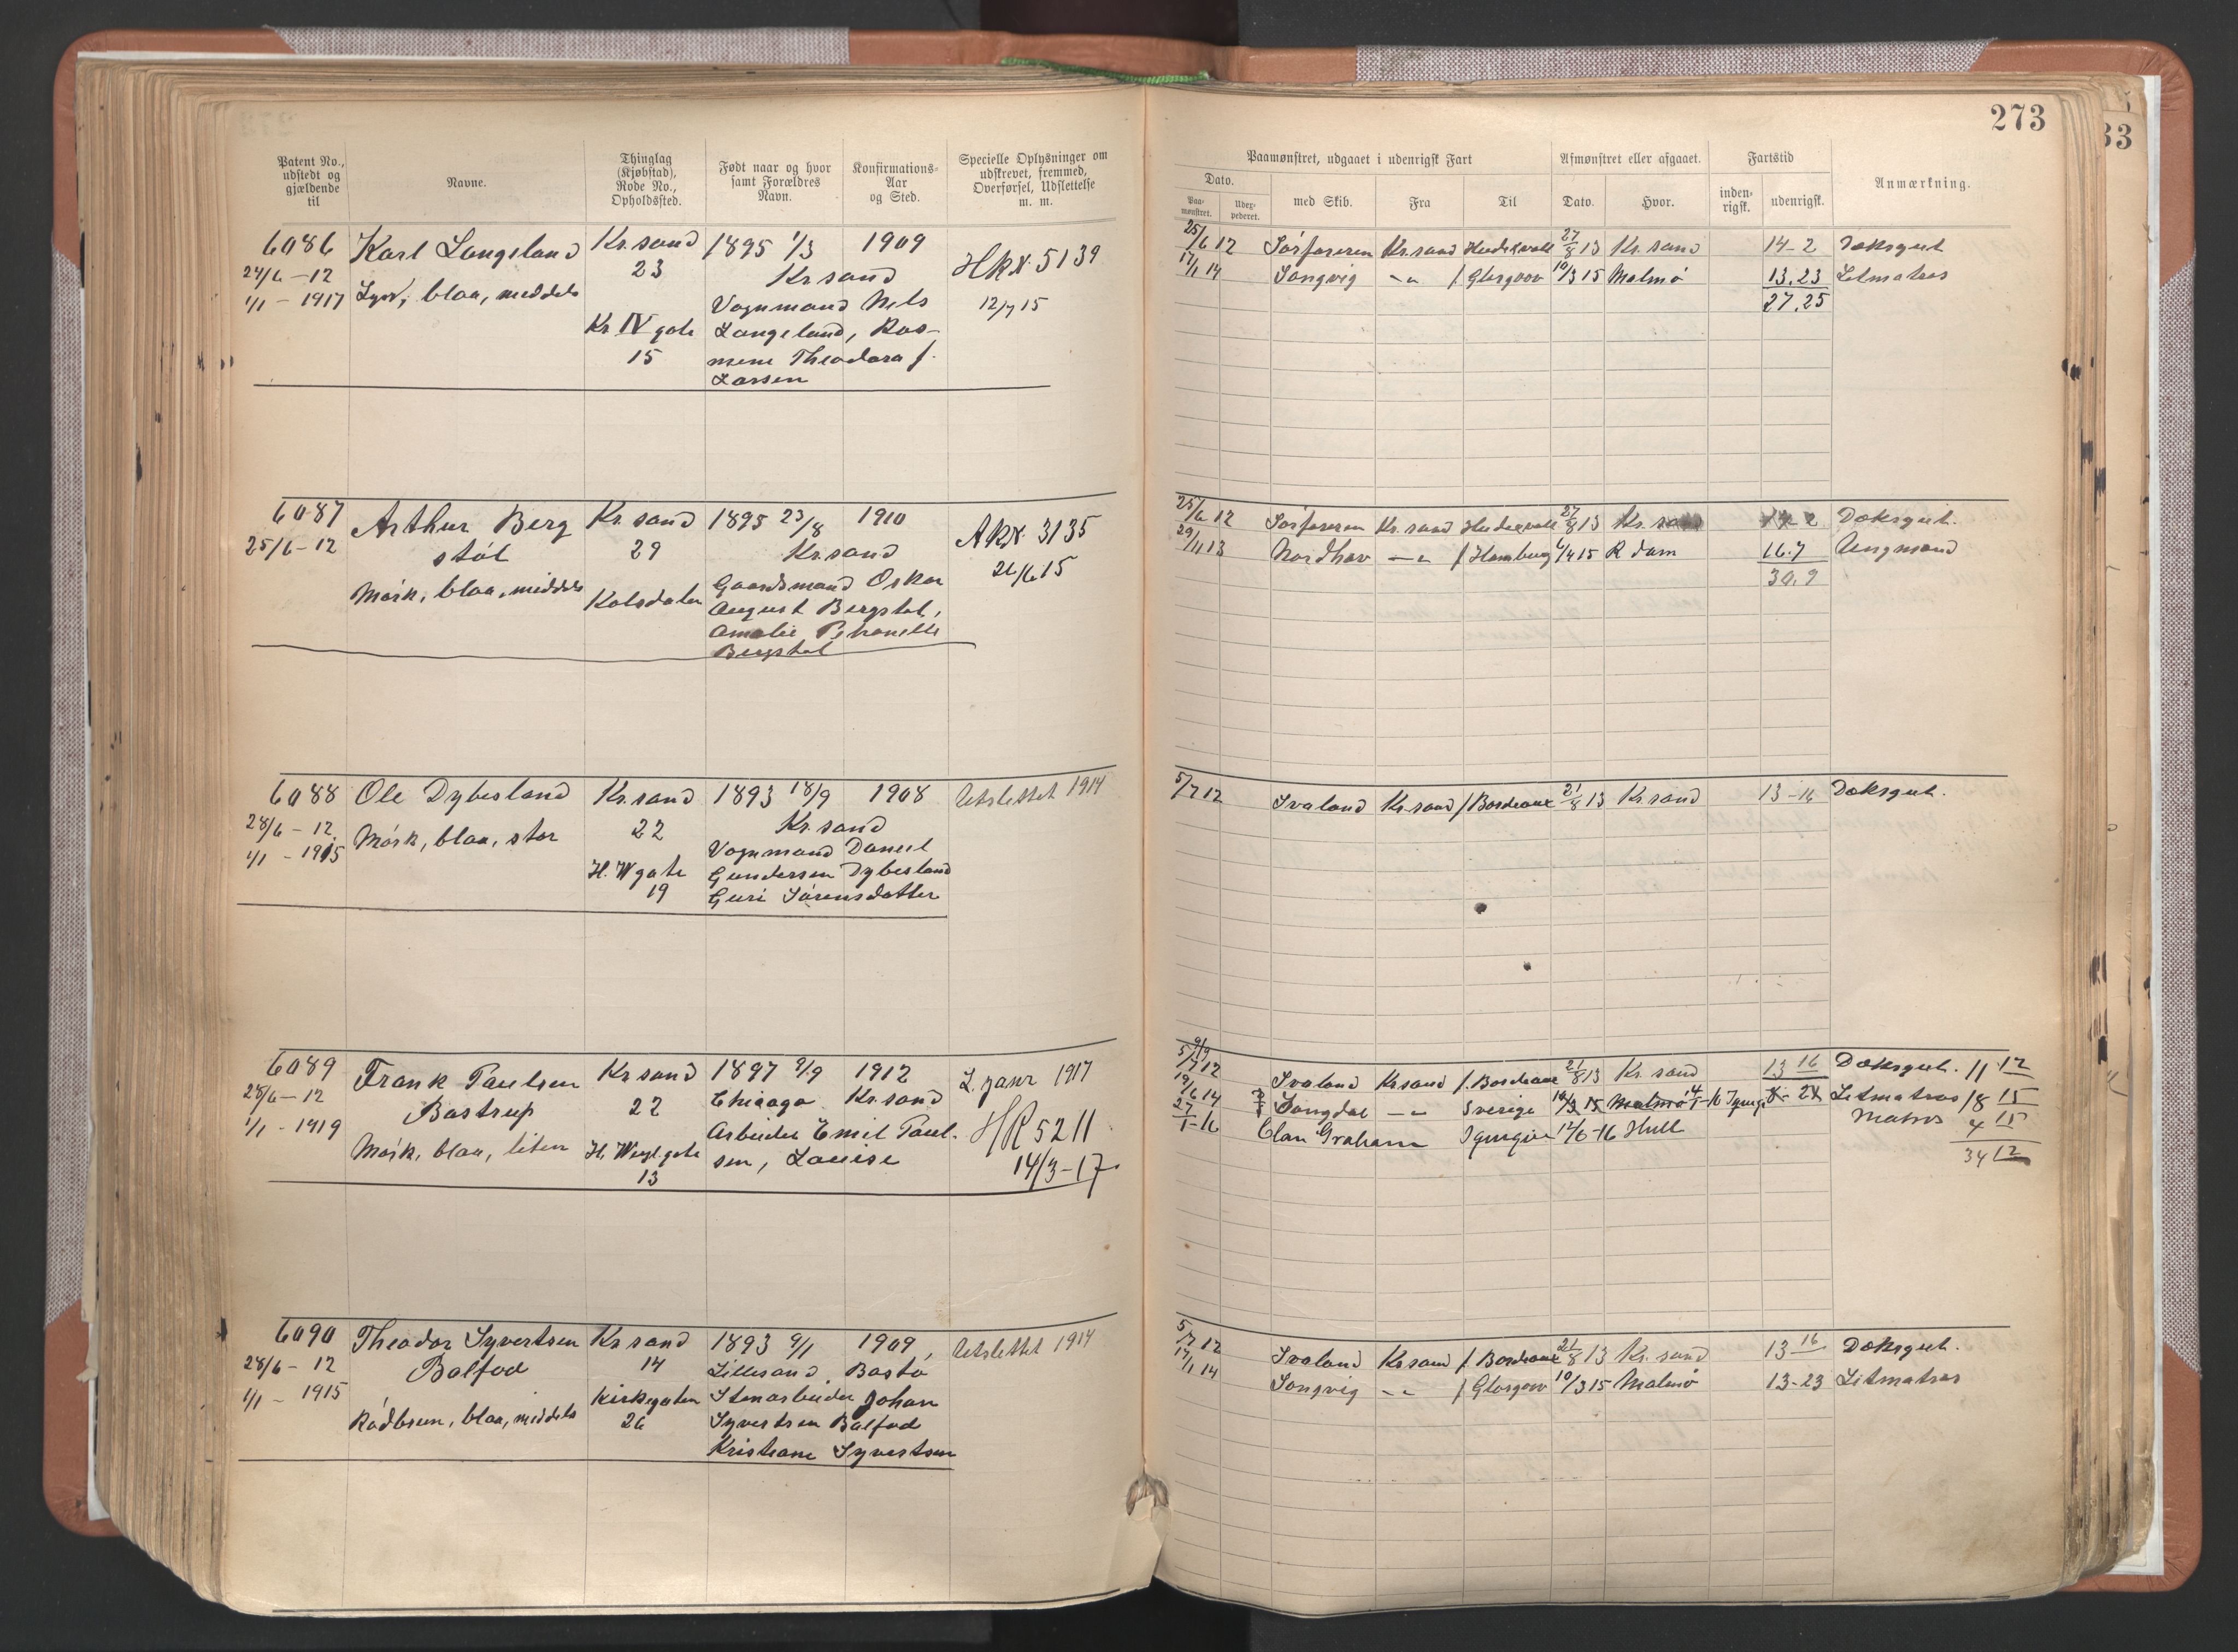 273
Patent No., udstedt og gjældende til
Navne.
Thinglag (Kjøbstad), Rode No., Opholdssted.
Født naar og hvor samt Forældres Navn.
Konfirmations-Aar og Sted.
Specielle Oplysninger om udskrevet, fremmed, Overførsel, Udslettelse m. m.
Paamønstret, udgaaet i udenrigsk Fart
Afmønstret eller afgaaet.
Fartstid
Anmærkning.
Dato.
Paa-mønstret.
Udex-pederet.
med Skib.
Fra
Til
Dato.
Hvor.
inden-rigsk.
udenrigsk.
6086 Karl Langeland Kr.sand 1895 1/3 1909
24/6 - 12 23 Kr sand HRN. 5139
1/1 - 1917 Lyst, blaa, middels Vognmand Nels 12/7 15
Kr IV gate Langeland, Ras-
15 mene Theodora f.
Larsen
25/6 12 Sørfareren Kr.sand Hudikvall 27/8 13 Kr. sand 14-2 Dæksgut
17/1 14 Songvig -"- f. Glasgow 10/3 15 Malmø 13.23 Letmatros
27.25
6087 Arthur Berg Kr. sand 1895 23/8 1910
25/6-12 støl 29 Kr.sand ARN. 3135
Mørk, blaa, middels Kolsdalen Gaardsmand Oskar 26/6 15
August Bergstøl,
Amalie Petronelle
Bergstøl
25/6 12 Sørfareren Kr.sand Hudikvall 27/8 13 Kr. sand 14 2 Dæksgut.
29/11 13 Nordhav -"- f Hamburg 4/4 15 R dam 16.7 Ungmand
30.9
6088 Ole Dybesland Kr.sand 1893 18/9 1908 Utslettet 1914
28/6 - 12. Mørk, blaa, stor 22 Kr. sand
1/1 - 1915 Vognmand Daniel
H. W gate Gundersen Dybesland
19 Guri Sørensdatter
5/7 12 Ivaland Kr.sand f Bordeaux 21/8 13 Kr sand 13-16 Dæksgut.
6089 Frank Paulsen Kr sand 1897 9/9 1912 L. janr 1917
28/6-12 Bastrup 22 Chicago Kr.sand
1/1 - 1919 Arbeider Emil Paul- HR 5211
Mørk, blaa, liten H. Wergl. gate sen, Louise 14/3-17
13
5/7 12 Ivaland Kr sand f. Bordeaux 21/8 13 Kr. sand 13 16 Dæksgut. 11 12
19/6 14 Songdal -"- Sverige 10/3 15 Malmø Letmatros 18 15
27/1-16 Clan Graham 14/6-16 Hull Matros 4 15
34 12
6090 Theodor Syvertsen Kr sand 1893 9/1 1909, Utslettet 1914
28/6 - 12 Balfod 14 Lillesand, Bastø
1/1 - 1915 Kirkegaten Stenarbeider Johan
Rødbrun, blaa, middels 26 Syvertsen Balfod
Kristiane Syvertsen
5/7 12 Ivaland Kr sand f. Bordeaux 21/8 13 Kr. sand 13 16 Dæksgut.
17/1 14 Songvig -"- f Glasgow 10/3 15 Malmø 13-23 Letmatros